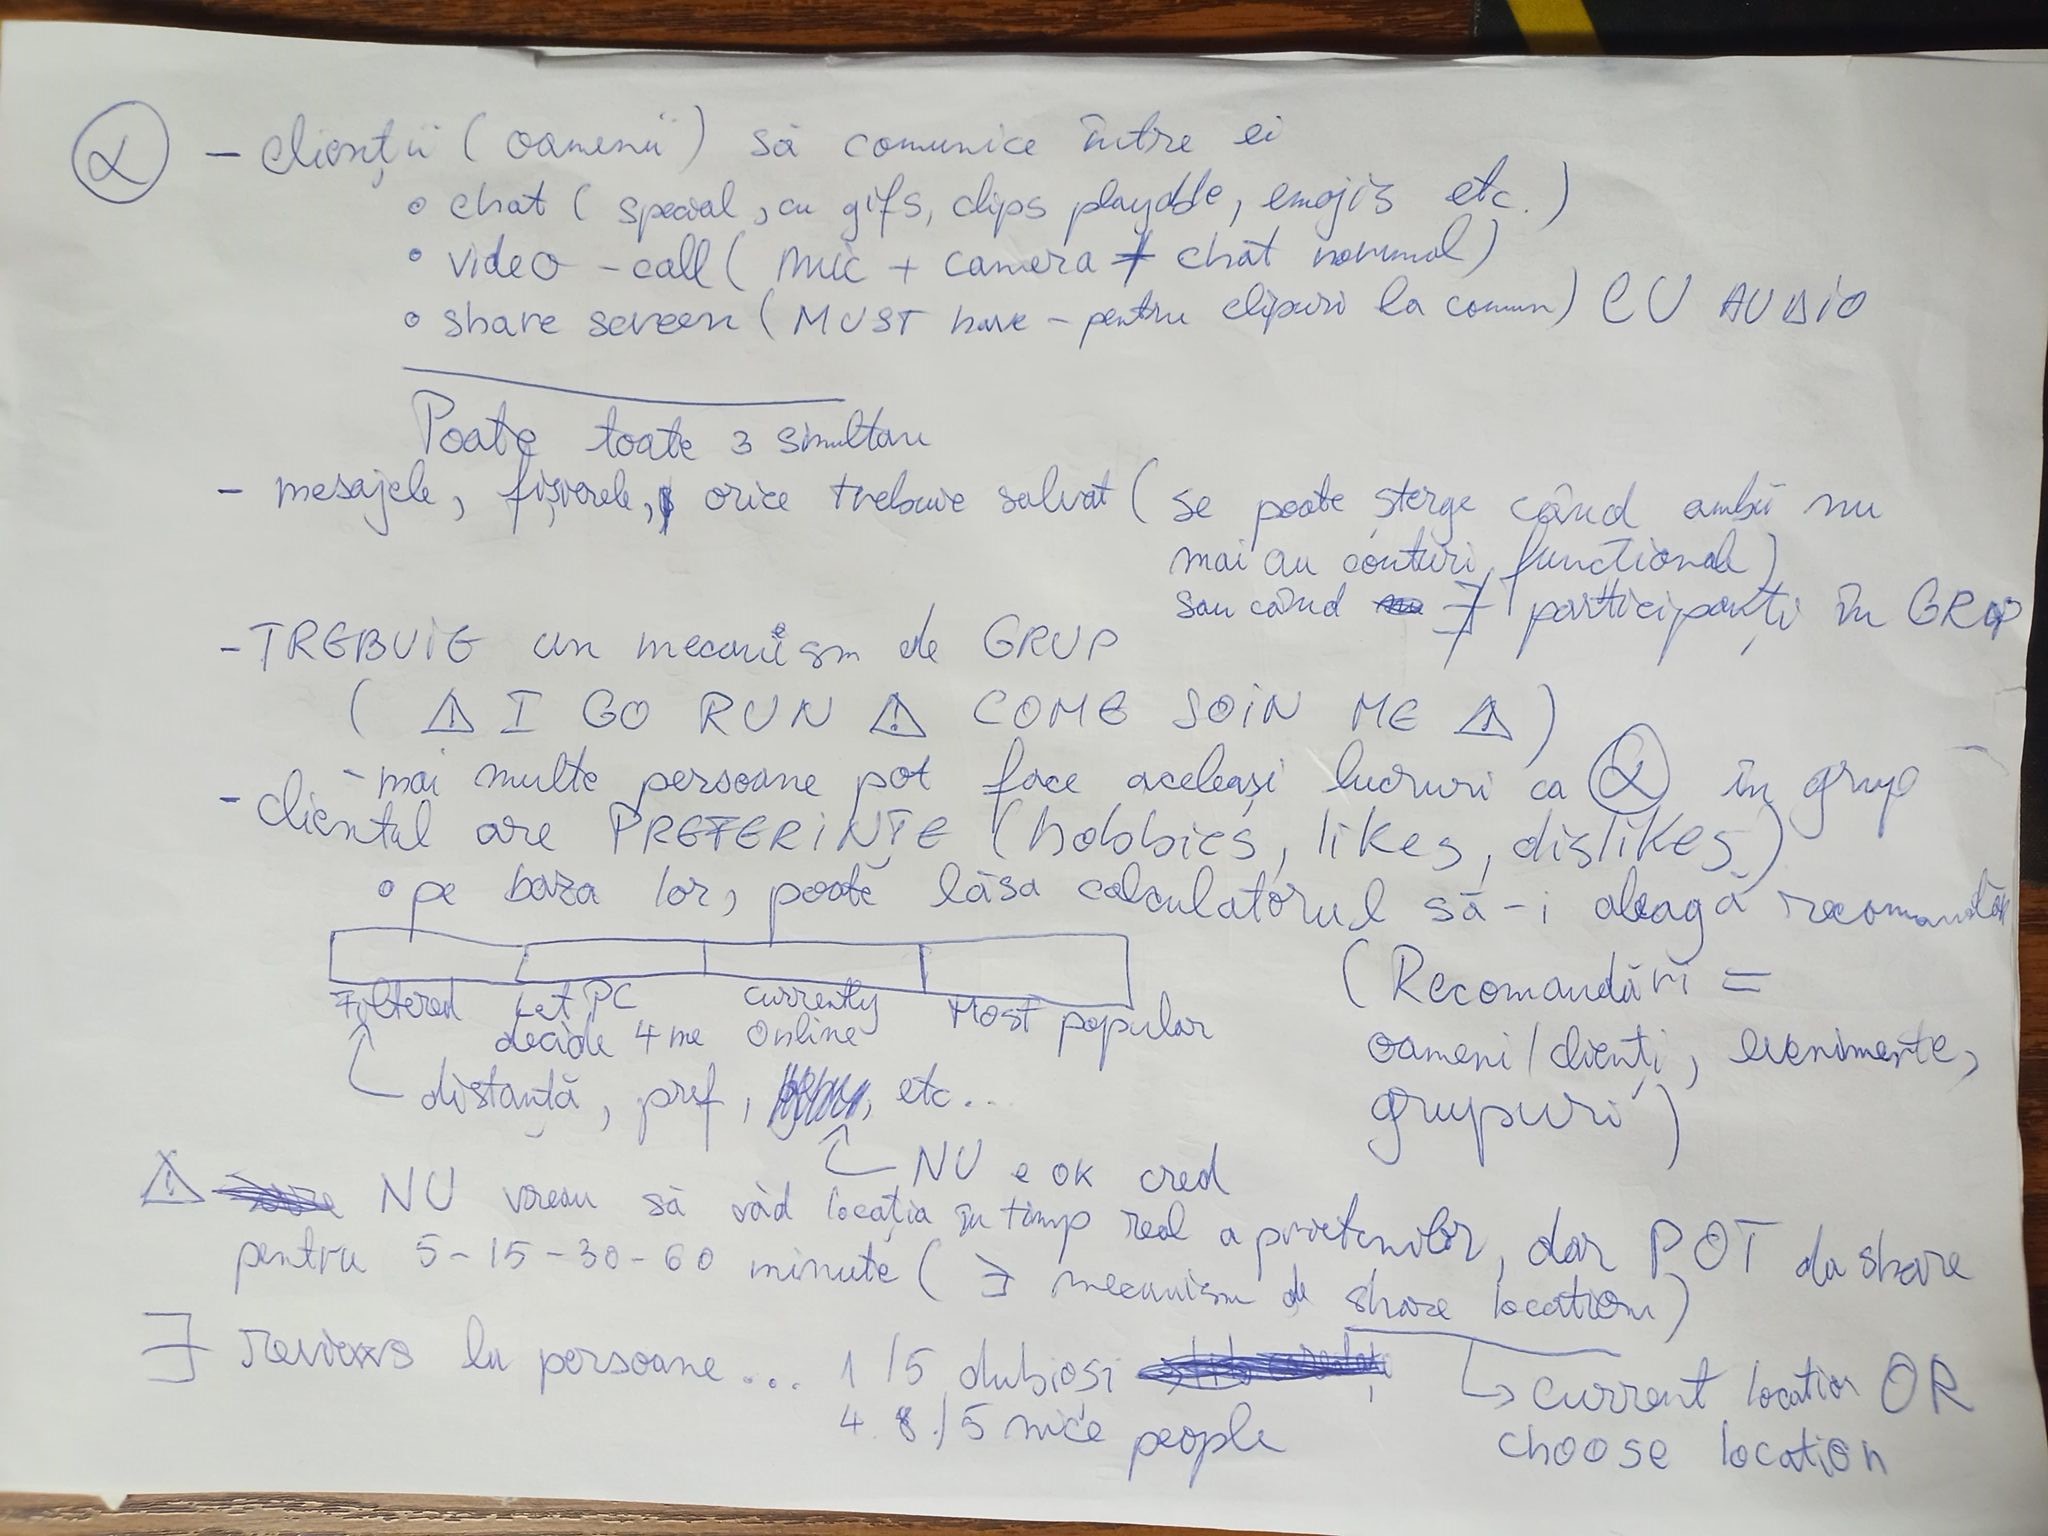 α - clienții (oamenii) să comunice între ei
• chat (special, cu gifs, clips playable, emojis etc.)
• video-call (mic + camera + chat normal)
• share screen (MUST have - pentru clipuri la comun) CU AUDIO
Poate toate 3 simultan
- mesajele, fișierele, orice trebuie salvat (se poate sterge când ambii nu
mai au conturi functionale)
sau când ∄ participanți în GRUP
- TREBUIE un mecanism de GRUP
(⚠ I GO RUN ⚠ COME JOIN ME ⚠)
- mai multe persoane pot face aceleași lucruri ca α în grup
- clientul are PREFERINȚE (hobbies, likes, dislikes)
• pe baza lor, poate lăsa calculatorul să-i aleagă
Filtered Let PC decide 4 me currently online Most popular
distanță, pref, etc...
NU e ok cred
(Recomandări =
oameni/clienți, evenimente,
grupuri)
⚠ NU vreau să văd locația în timp real a prietenilor, dar POT da share
pentru 5-15-30-60 minute (∃ mecanism de share location)
current location OR
choose location
∃ reviews la persoane... 1/5 dubiosi
4.8/5 nice people